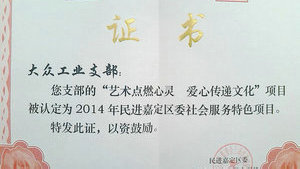 证书
大众工业支部：
您支部的“艺术点燃心灵 爱心传递文化”项目
被认定为2014年民进嘉定区委社会服务特色项目。
特发此证，以资鼓励。
民进嘉定区委